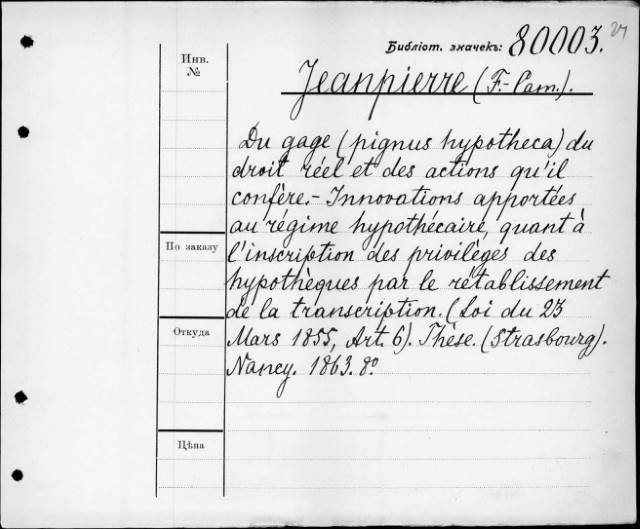 27
Библіот. значекъ: 80003.
Инв.
№
Jeanpierre (F.-Cam.).
Du gage (pignus hypotheca) du
droit réel et des actions qu'il
confère.- Innovations apportées
au régime hypothécaire, quant à
По заказу
l'inscription des privilèges des
hypothèques par le rétablissement
de la transcription. (Loi du 23
Откуда
Mars 1855, Art. 6). Thèse. (Strasbourg).
Nancy. 1863. 8º
Цѣна